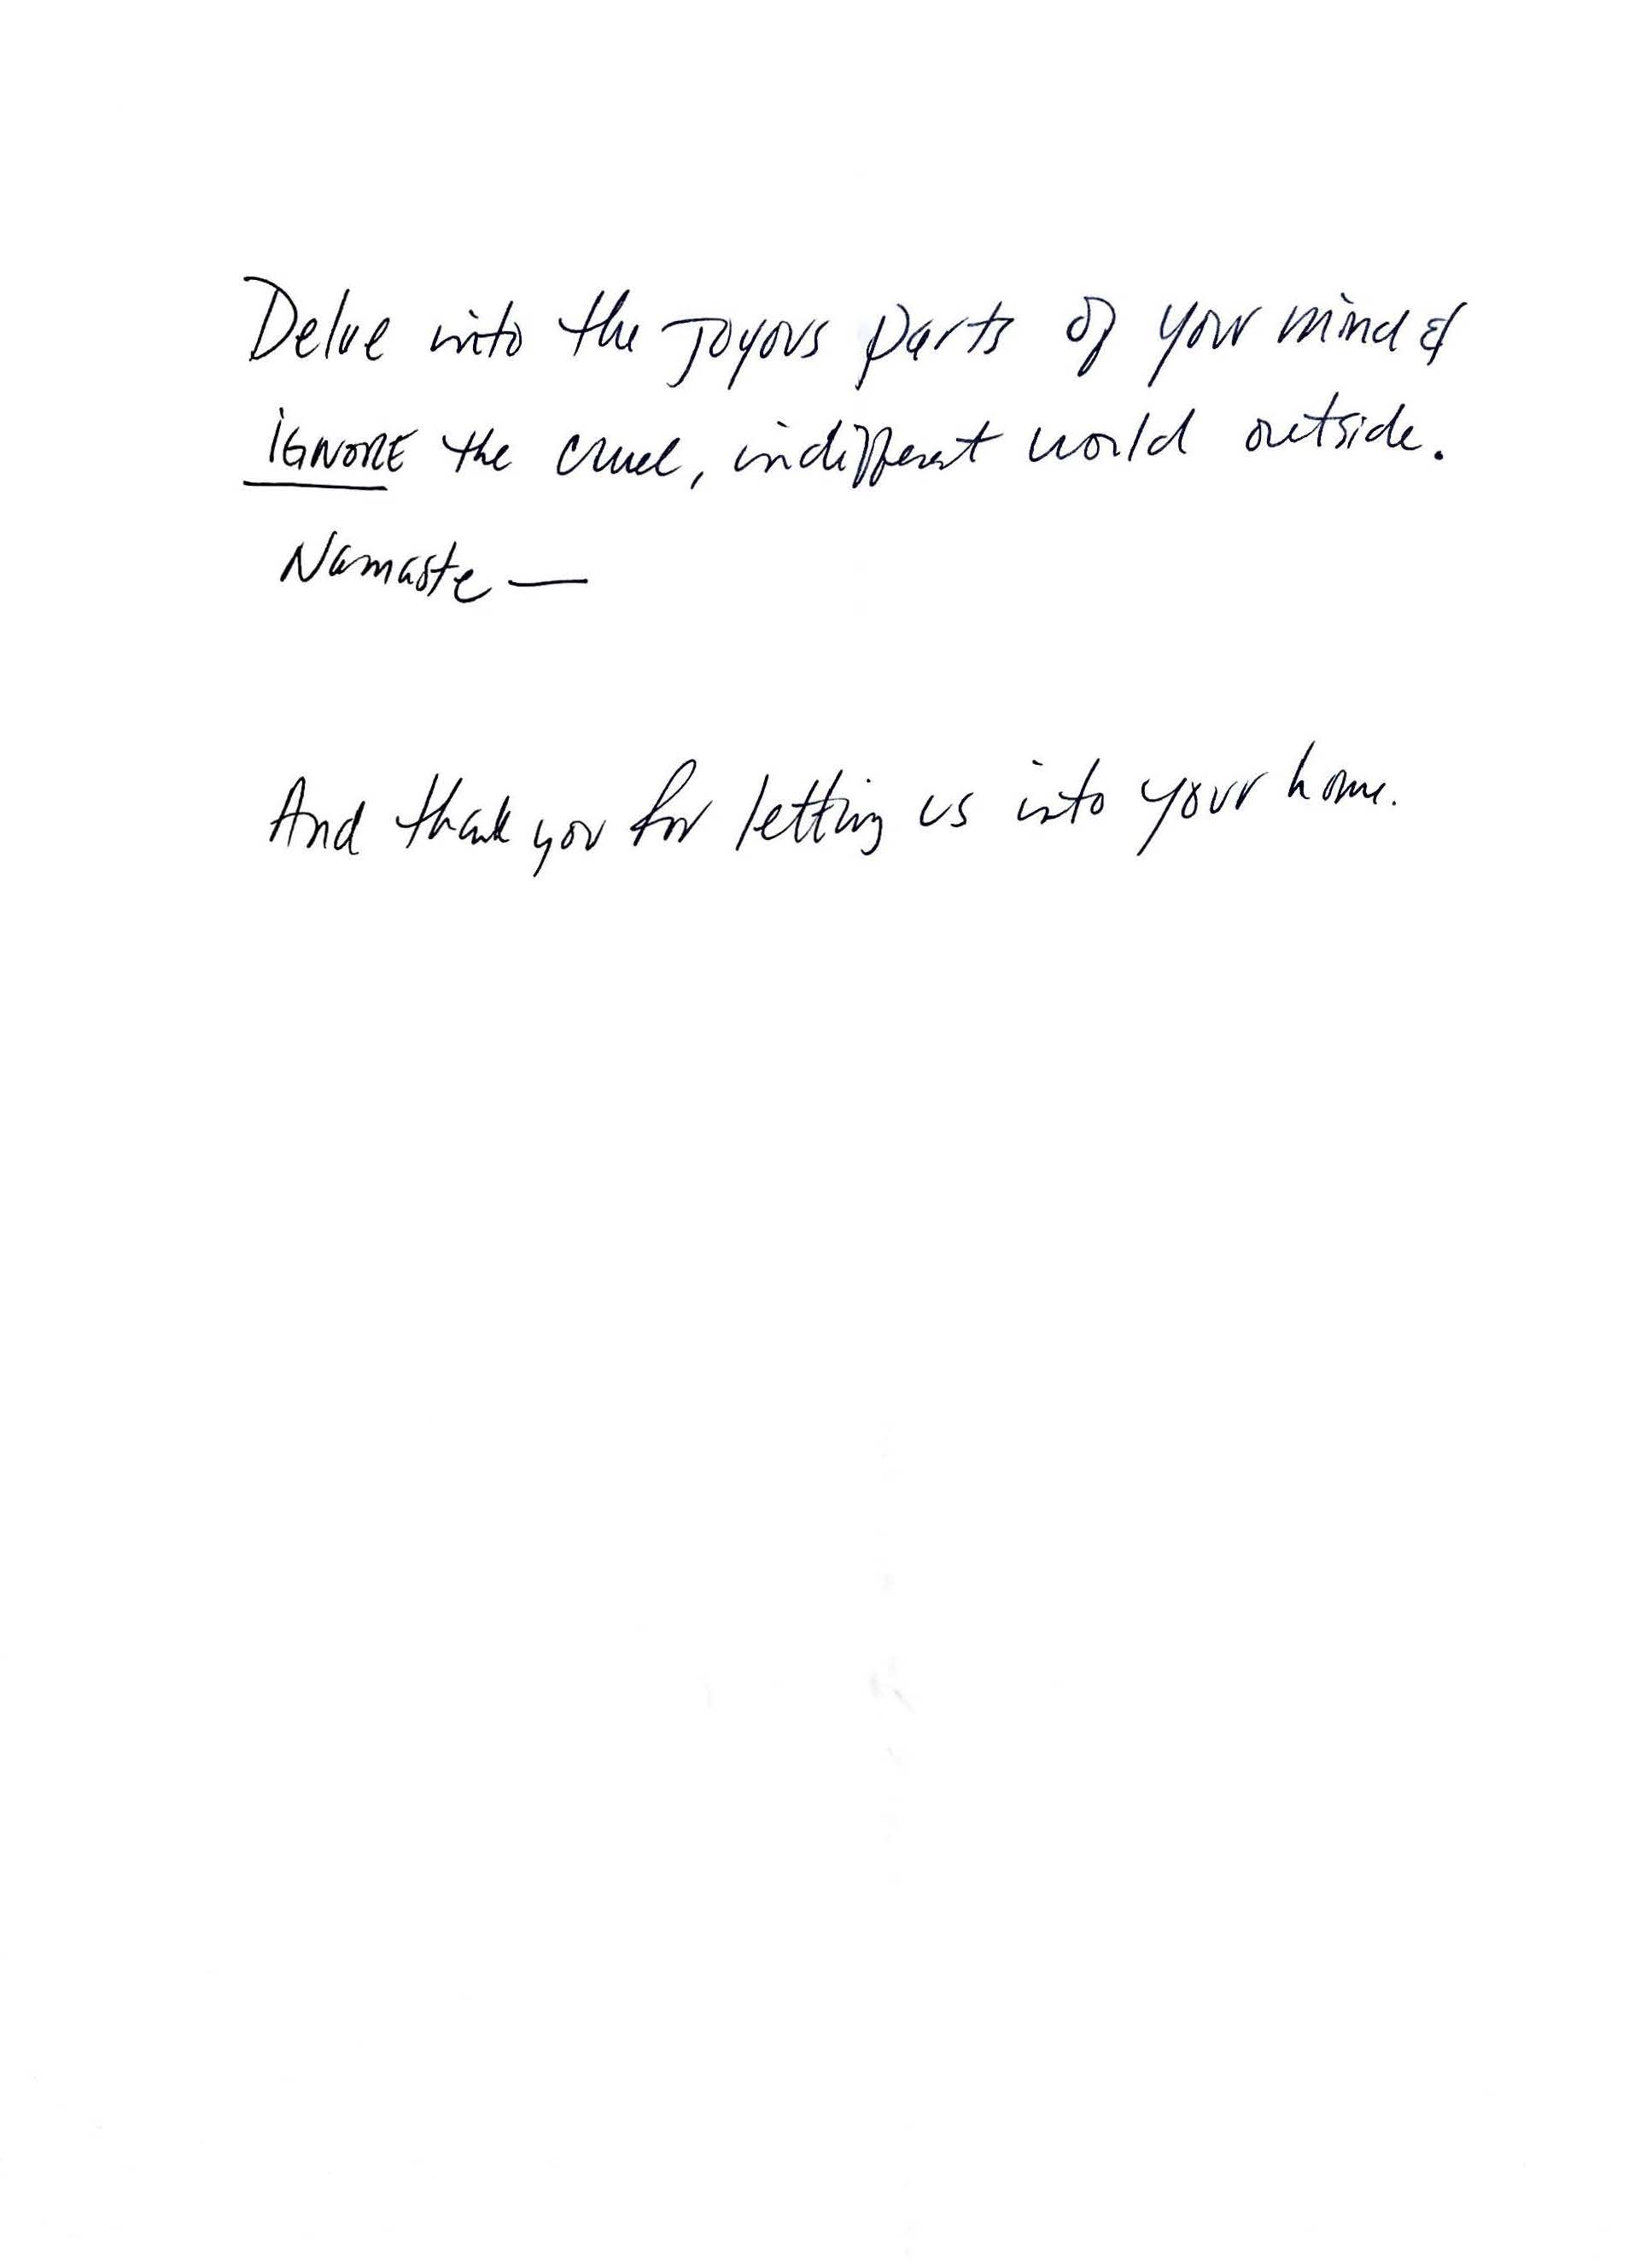 Delve into the Joyous parts of your mind &
IGNORE the cruel, indifferent world outside.
Namaste —
And thank you for letting us into your home.